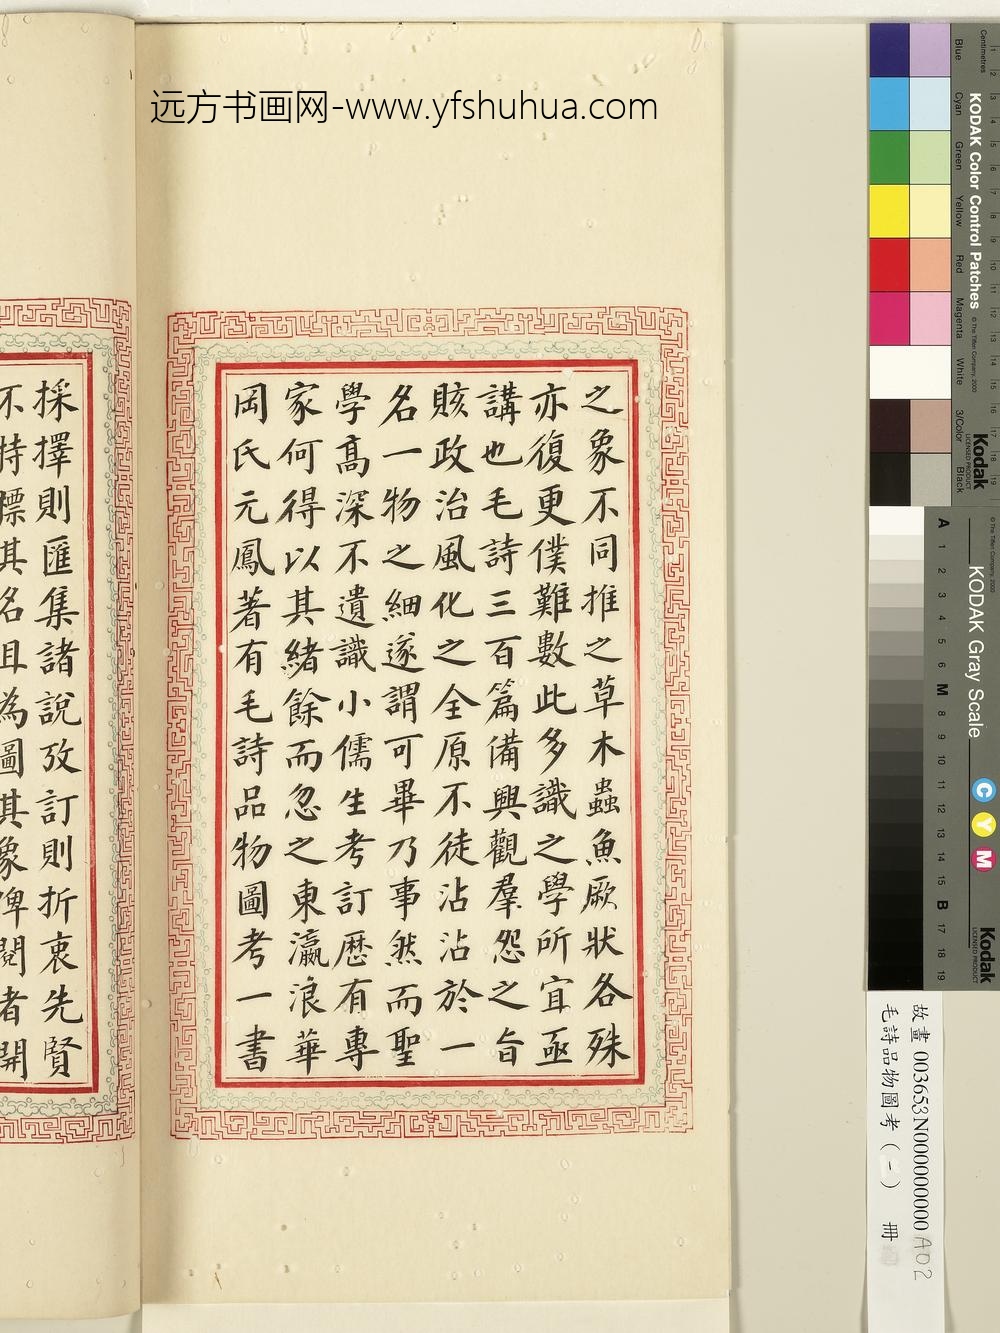 远方书画网-www.yfshuhua.com
之象不同推之草木蟲魚厥狀各殊
亦復更僕難數此多識之學所宜亟
講也毛詩三百篇備興觀羣怨之旨
賅政治風化之全原不徒沾沾於一
名一物之細遂謂可畢乃事然而聖
學高深不遺識小儒生考訂歷有專
家何得以其緒餘而忽之東瀛浪華
岡氏元鳳著有毛詩品物圖考一書
採擇則匯集諸說攷訂則折衷先賢
不特標其名且為圖其象俾閱者開
KODAK Color Control Patches
© The Tiffen Company, 2000
Kodak
LICENSED PRODUCT
Centimetres
Blue
Cyan
Green
Yellow
Red
Magenta
White
3/Color
Black
KODAK Gray Scale
© The Tiffen Company, 2000
Kodak
LICENSED PRODUCT
C
Y
M
A 1 2 3 4 5 6 M 8 9 10 11 12 13 14 15 B 17 18 19
故畫 003653N000000000 A02
毛詩品物圖考(一) 冊